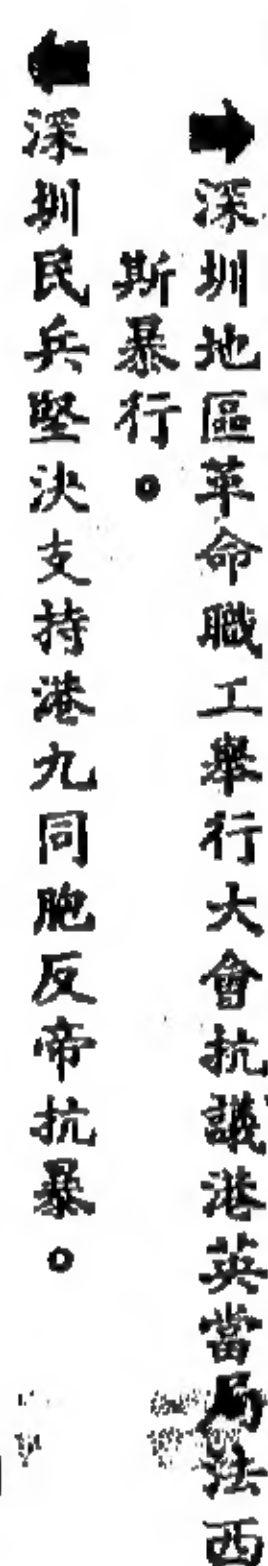 ➡深圳地區革命職工舉行大會抗議港英當局法西
斯暴行。
⬅深圳民兵堅決支持港九同胞反帝抗暴。